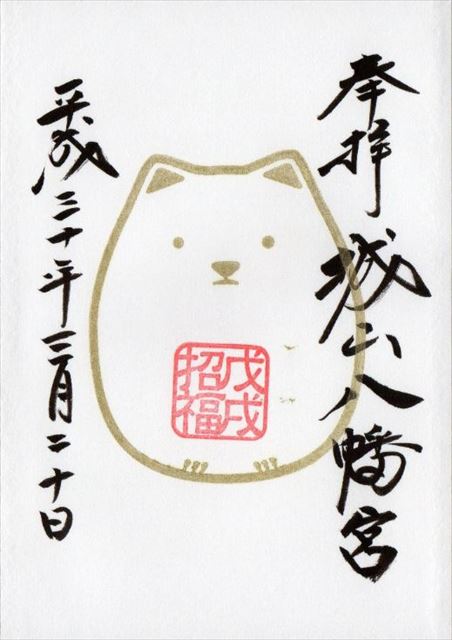 奉拝 城山八幡宮
戊戌
招福
平成三十年三月二十日